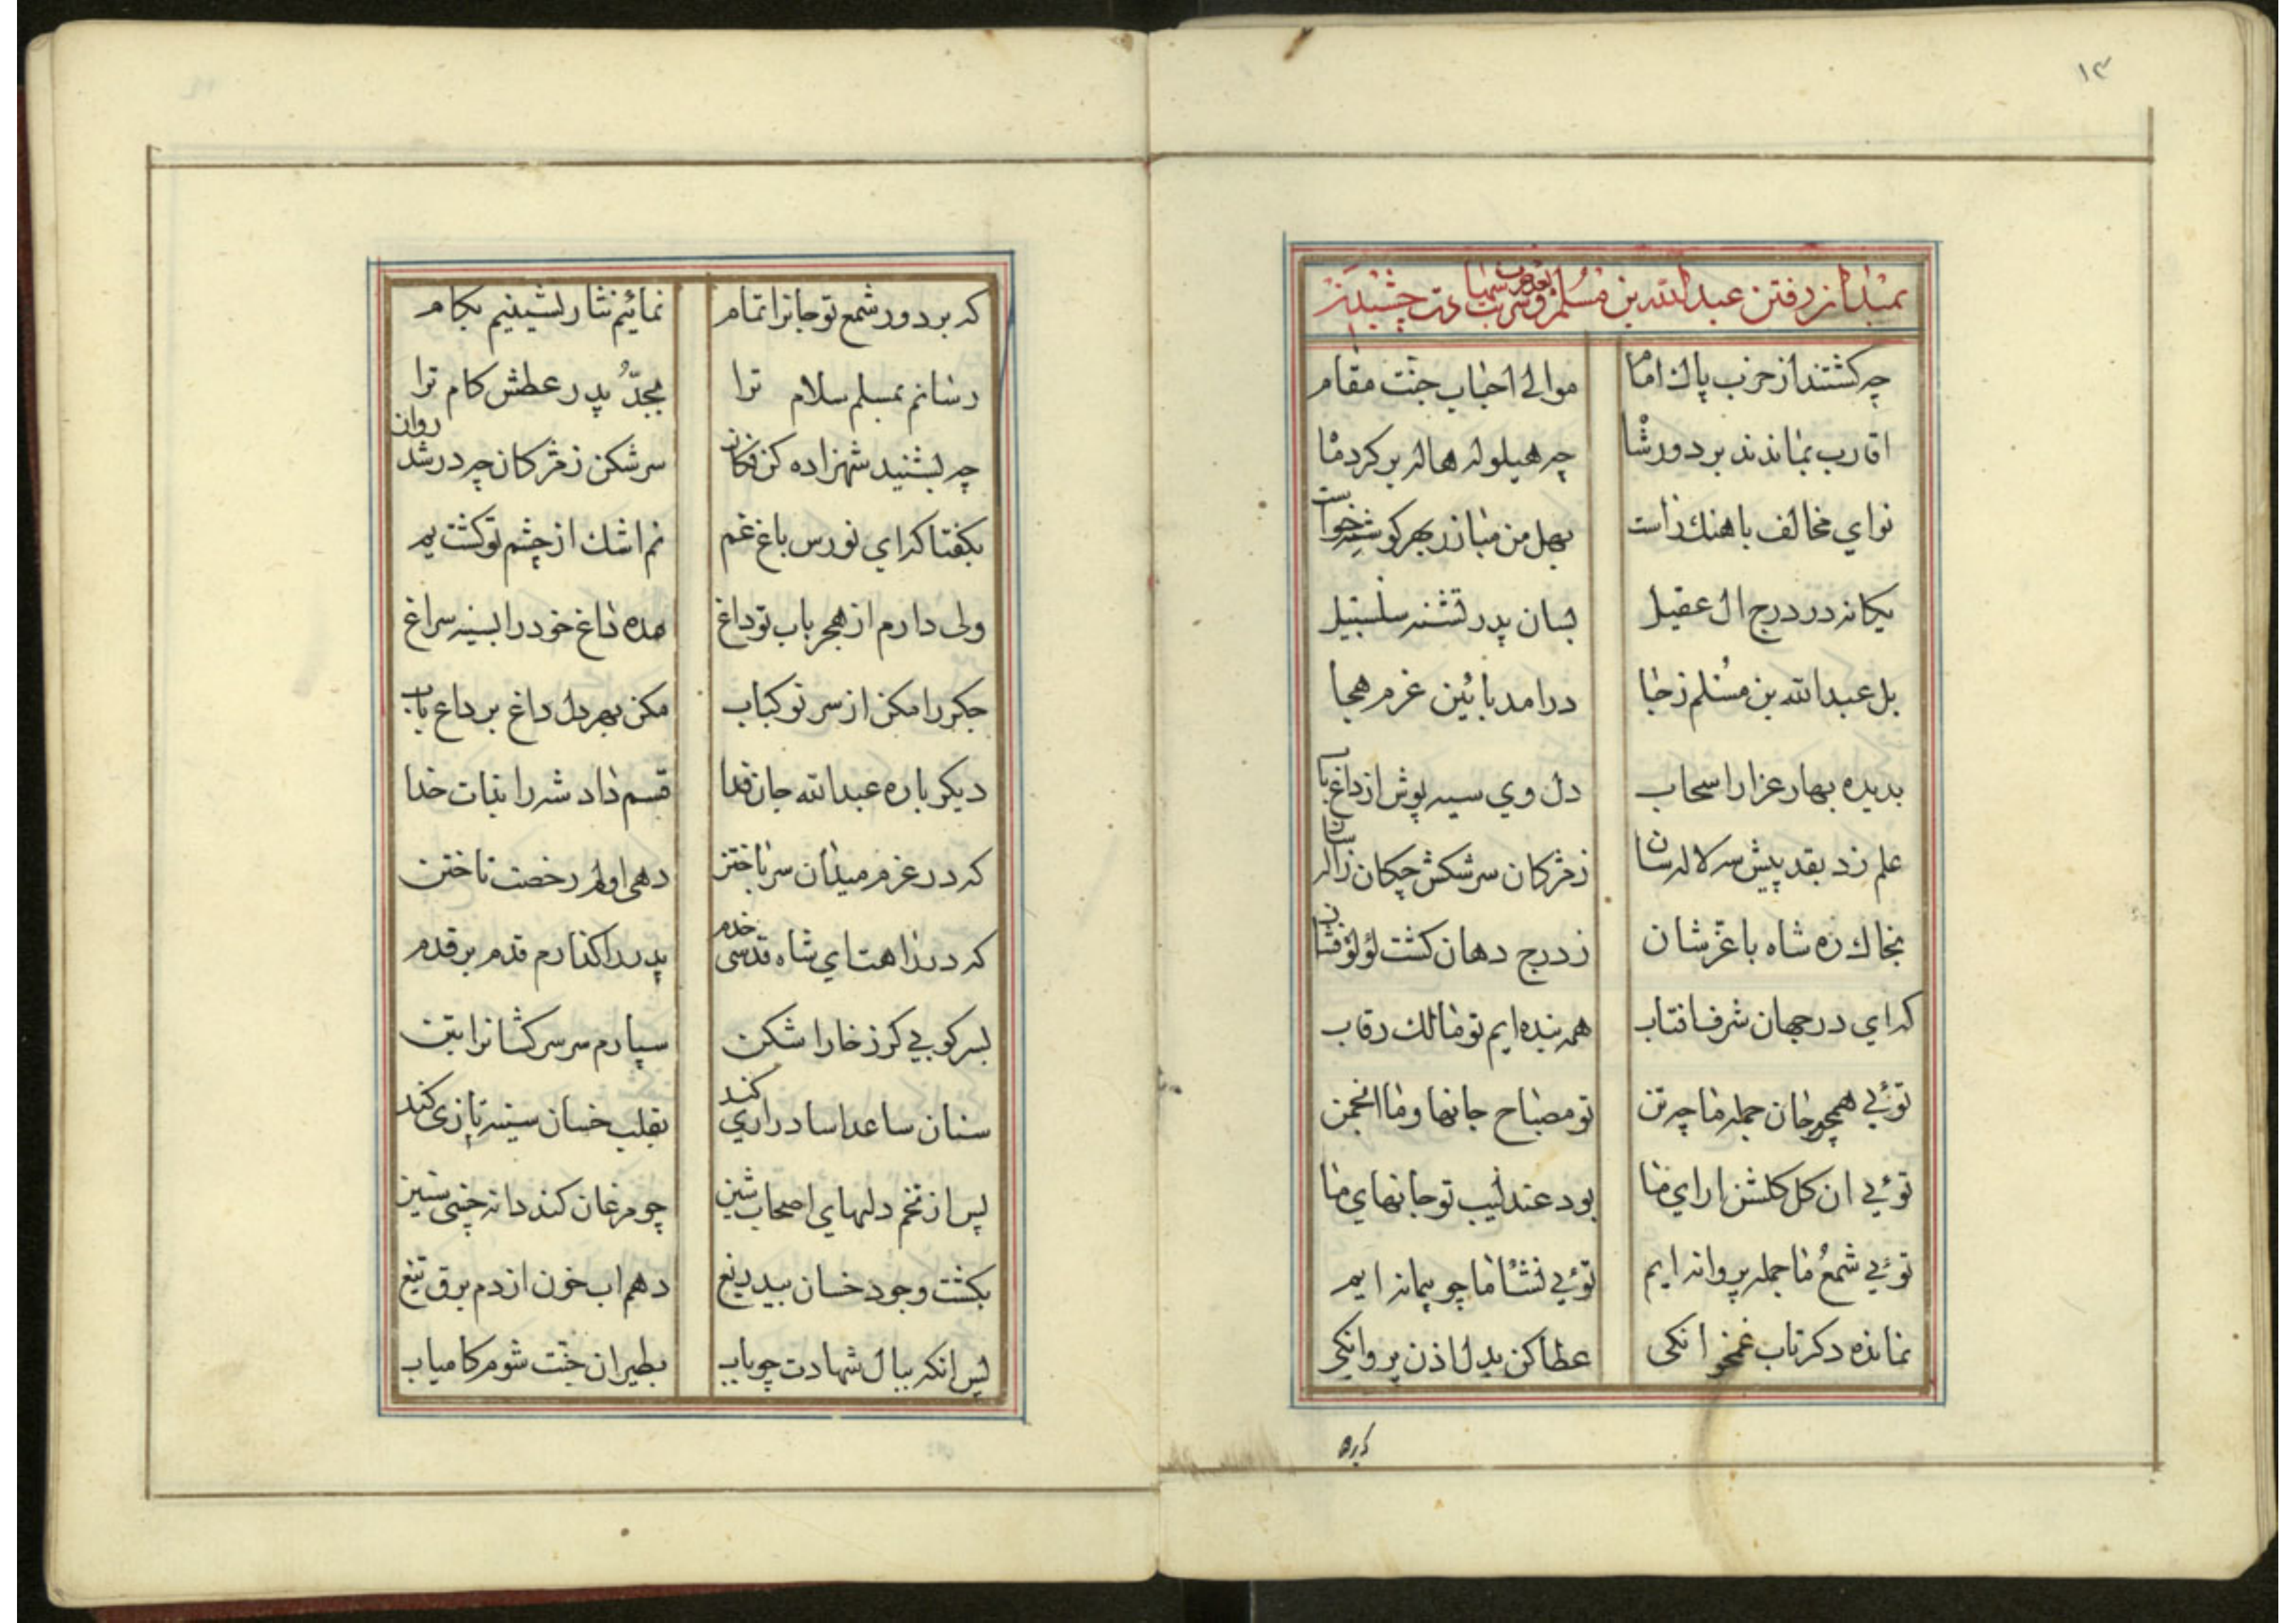 ۱۳
بمیدان رفتن عبدالله بن مسلم و شربت شهادت چشیدن
چه کشتند از حزب پاک اما موالی احباب جنت مقام
اقارب بماندند بر دور شا چه هیلوله هاله بر کرد ما
نوای مخالف باهنک راست بهل من مبارز بهر کوشه خواست
یکانه در درج ال عقیل بسان پدر تشنه سلسبیل
یل عبدالله بن مسلم ز جا درامد بائین عزم هجا
بدیده بهار عزا را سحاب دل وی سیه پوش از داغ باب
علم زد بقد پیش سه لاله سان ز مژکان سرشکش چکان ژاله سان
بخاک ره شاه با عز و شان ز درج دهان کشت لؤلؤ فشان
که ای در جهان شرف افتاب همه بنده ایم تو مالک رقاب
توئی همچو جان جمله ما چه تن تو مصباح جانها و ما انجمن
توئی ان کل کلشن ارای ما بود عندلیب تو جانهای ما
توئی شمع ما جمله پروانه ایم توئی نشأ ما چو پیمانه ایم
نمانده دکر تاب غمخوانکی عطا کن بدل اذن پروانکی
که بر دور شمع تو جانرا تمام نمائیم نثار نشینیم بکام
رسانم بمسلم سلام ترا بجد پدر عطش کام ترا
چه بشنید شهزاده کن فکان سرشکن ز مژکان چه در شد روان
بکفتا که ای نورس باغ غم نم اشک از چشم تو کشت یم
ولی دارم از هجر باب تو داغ مده داغ خود را بسینه سراغ
جکر را مکن از سر نو کباب مکن بهر دل داغ بر داغ باب
دیکر باره عبدالله جان فدا قسم داد شه را بذات خدا
که در عزم میدان سر باختن دهی اولم رخصت تاختن
که در راهت ای شاه قدسی خدم پدر را کذارم قدم بر قدم
بسر کوبی کرز خارا شکن سپارم سر سرکشانرا بتن
سنان ساعد اسا درازی کند بقلب خسان سینه تازی کند
پس از تخم دلهای اصحاب شین چو مرغان کند دانه چنی ستیز
بکشت وجود خسان بیدریغ دهم اب خون از دم برق تیغ
پس انکه ببال شهادت چو باب بطیران جنت شوم کامیاب